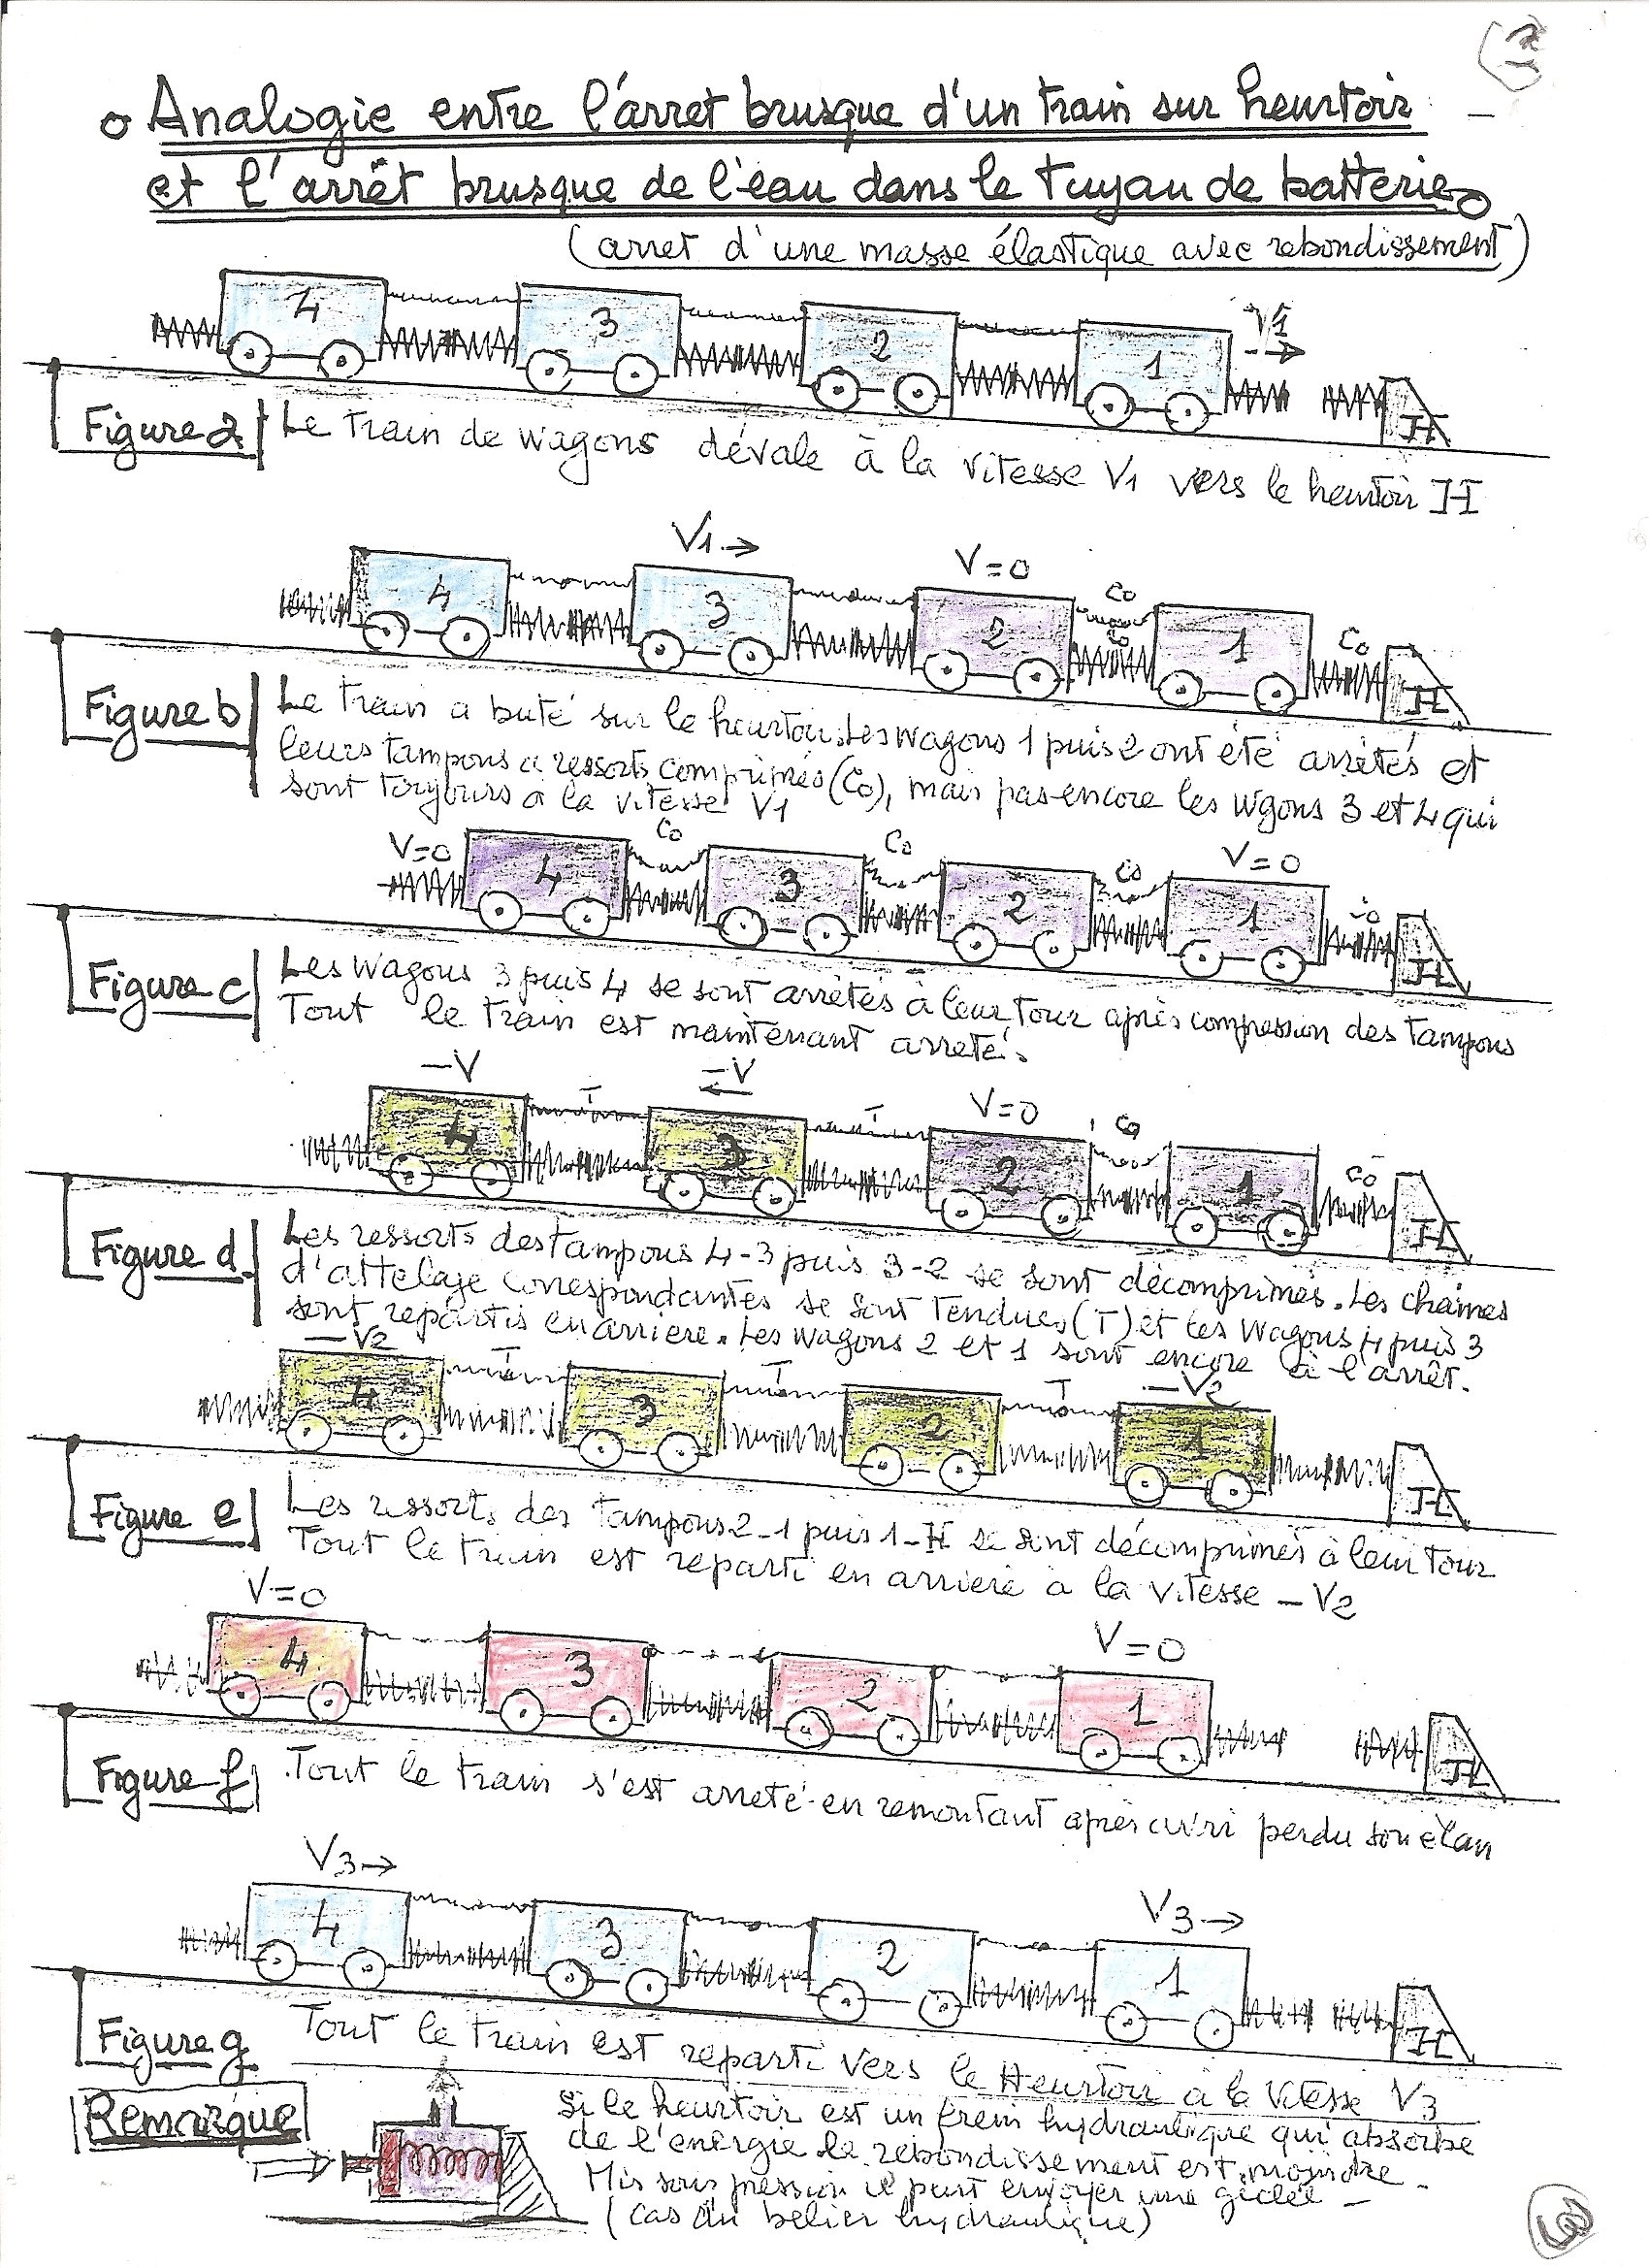 Analogie entre l'arret brusque d'un train sur heurtoir
et l'arrêt brusque de l'eau dans le tuyau de batterie.
(arret d'une masse élastique avec rebondissement)
4 3 2 1 V1
H
Figure a Le train de wagons dévale à la vitesse V1 vers le heurtoir H
V1 V=0
4 3 2 Co Co 1 Co
H
Figure b Le train a buté sur le heurtoir. Les wagons 1 puis 2 ont été arrêtés et
leurs tampons a ressorts comprimés (Co), mais pas encore les wgons 3 et 4 qui
sont toujours a la vitesse V1
V=0 Co Co Co V=0
4 3 2 1 Co
H
Figure c Les wagons 3 puis 4 se sont arrêtés à leur tour après compression des tampons
Tout le train est maintenant arreté.
-V -V
4 T 3 T V=0 2 Co 1 Co
H
Figure d Les ressorts des tampons 4-3 puis 3-2 se sont décomprimés. Les chaines
d'attelage correspondantes se sont tendues (T) et les wagons 4 puis 3
sont repartis en arriere. Les wagons 2 et 1 sont encore à l'arrêt.
-V2 T T T -V2
4 3 2 1
H
Figure e Les ressorts des tampons 2-1 puis 1-H se sont décomprimés à leur tour
Tout le train est reparti en arriere à la vitesse -V2
V=0 V=0
4 3 2 1
H
Figure f Tout le train s'est arreté en remontant après avoir perdu son élan
V3 V3
4 3 2 1
H
Figure g Tout le train est reparti vers le Heurtoir a la vitesse V3
Remarque Si le heurtoir est un frein hydraulique qui absorbe
de l'energie le rebondissement est moindre.
Mis sous pression il peut envoyer une giclée
(cas du belier hydraulique)